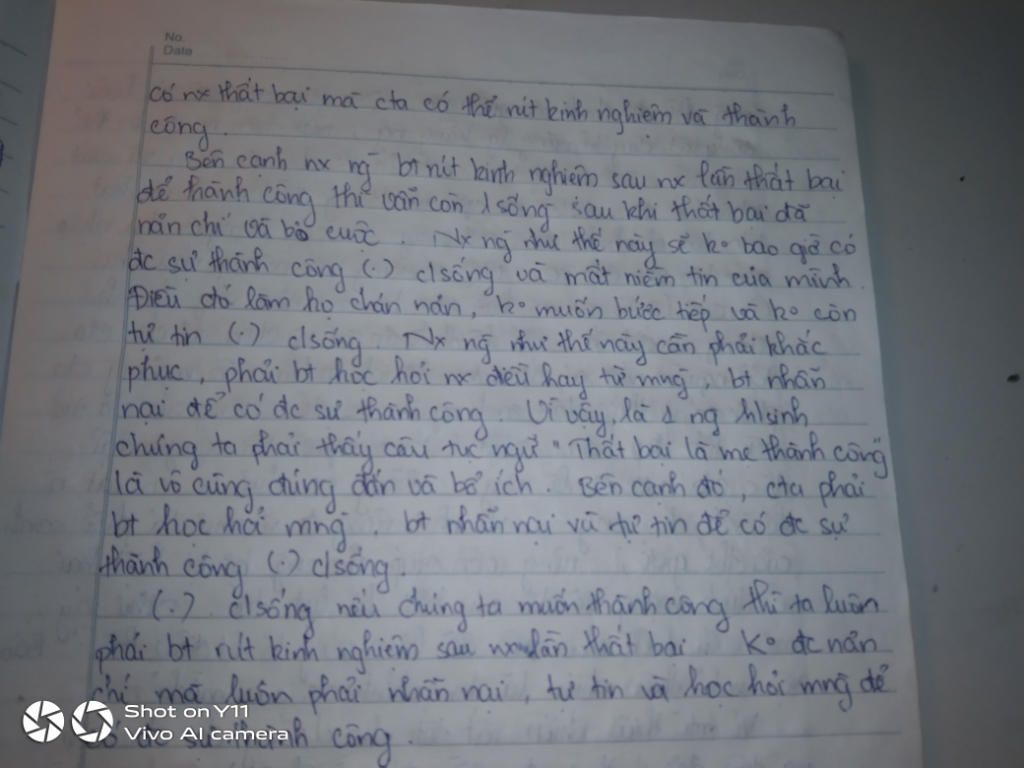 No.
Date
có nx thất bại mà cta có thể rút kinh nghiệm và thành
công.
Bên cạnh nx ng bt rút kinh nghiệm sau nx lần thất bại
để thành công thì vẫn còn 1 sống sau khi thất bại đã
nản chí và bỏ cuộc. Nx ng như thế này sẽ ko bao giờ có
đc sự thành công (.) c/sống và mất niềm tin của mình.
Điều đó làm họ chán nản, ko muốn bước tiếp và ko còn
tự tin (.) c/sống Nx ng như thế này cần phải khắc
phục, phải bt học hỏi nx điều hay từ mng, bt nhẫn
nại để có đc sự thành công. Vì vậy, là 1 ng h/sinh
chúng ta phải thấy câu tục ngữ "Thất bại là mẹ thành công"
là vô cùng đúng đắn và bổ ích. Bên cạnh đó, cta phải
bt học hỏi mng, bt nhẫn nại và tự tin để có đc sự
thành công (.) c/sống.
(.) c/sống nếu chúng ta muốn thành công thì ta luôn
phải bt rút kinh nghiệm sau nx lần thất bại. Ko đc nản
chí mà luôn phải nhẫn nại, tự tin và học hỏi mng để
có đc sự thành công.
Shot on Y11
Vivo AI camera